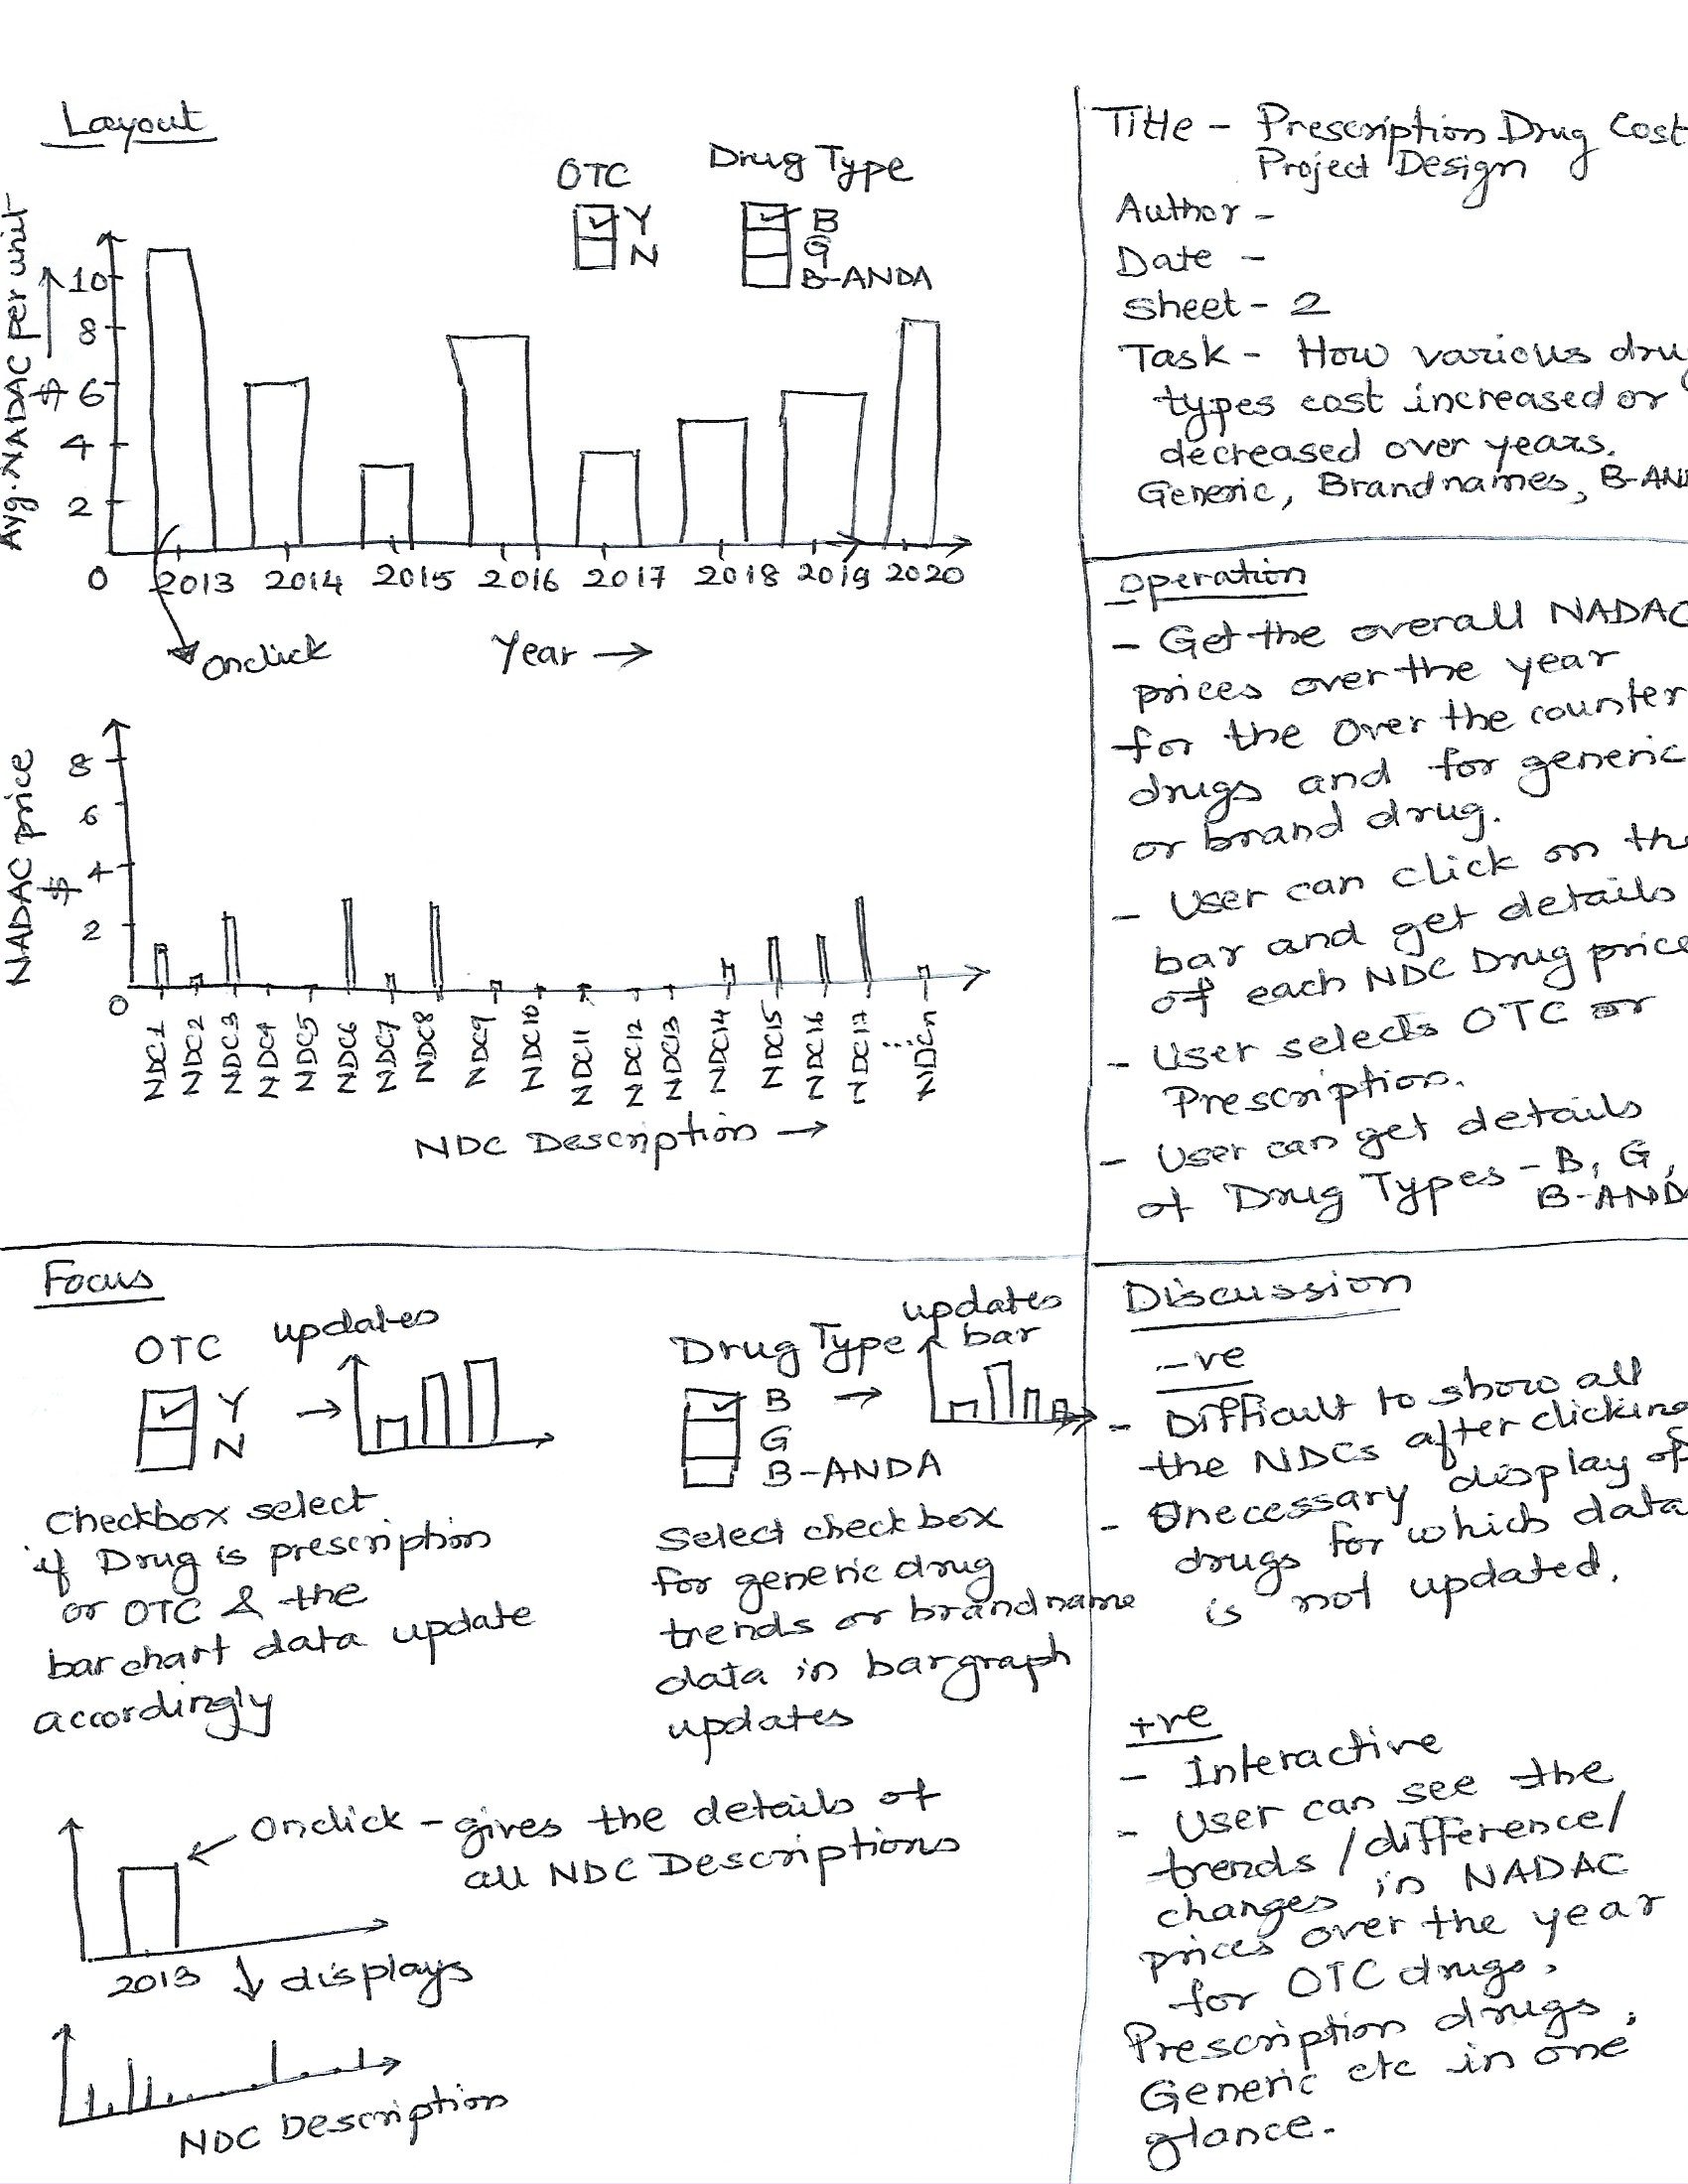 Layout
OTC
Y
N
Drug Type
B
G
B-ANDA
Avg. NADAC per unit
$
10
8
6
4
2
0
2013 2014 2015 2016 2017 2018 2019 2020
Onclick
Year
NADAC price
$
8
6
4
2
0
NDC1
NDC2
NDC3
NDC4
NDC5
NDC6
NDC7
NDC8
NDC9
NDC10
NDC11
NDC12
NDC13
NDC14
NDC15
NDC16
NDC17
...
NDCn
NDC Description
Title - Prescription Drug Cost
Project Design
Author -
Date -
Sheet - 2
Task - How various dru
types cost increased or
decreased over years.
Generic, Brandnames, B-AN
Operation
- Get the overall NADAC
prices over the year
for the Over the counter
drugs and for generic
or brand drug.
- User can click on the
bar and get details
of each NDC Drug price
- User selects OTC or
Prescription.
- User can get details
of Drug Types - B, G,
B-AND
Focus
OTC updates
Y
N
Checkbox select
if Drug is prescription
or OTC & the
bar chart data update
accordingly
Drug Type updates
bar
B
G
B-ANDA
Select check box
for generic drug
trends or brand name
data in bar graph
updates
Onclick - gives the details of
all NDC Descriptions
2013 displays
NDC Description
Discussion
-ve
- Difficult to show all
the NDCs after clicking
- Unecessary display of
drugs for which data
is not updated.
+ve
- Interactive
- User can see the
trends / difference/
changes in NADAC
prices over the year
for OTC drugs,
Prescription drugs,
Generic etc in one
glance.